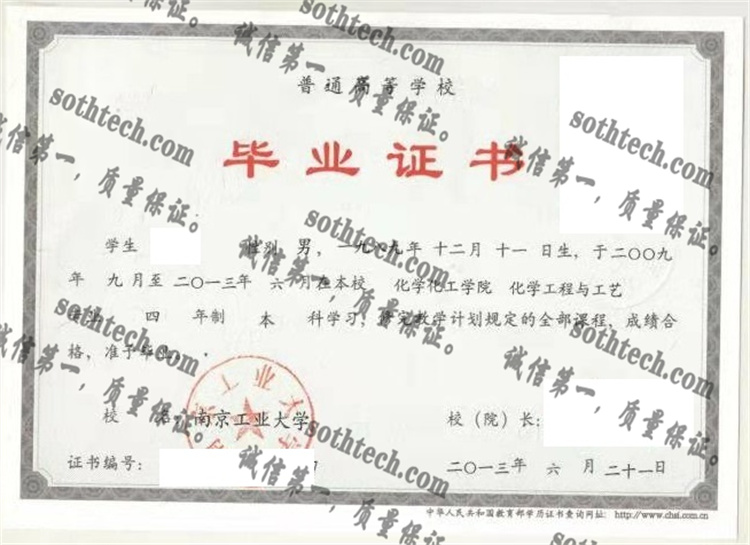 普通高等学校
毕业证书
学生 性别 男，一九八九年 十二月 十一 日生，于二〇〇九
年 九 月至 二〇一三年 六 月在本校 化学化工学院 化学工程与工艺
四 年制 本 科学习，修完教学计划规定的全部课程，成绩合
格，准予毕业。
校 名 南京工业大学
校（院）长：
证书编号：
二〇一三年 六 月 二十一日
中华人民共和国教育部学历证书查询网址：http://www.chsi.com.cn
sothtech.com
诚信第一，质量保证。
sothtech.com
诚信第一，质量保证。
sothtech.com
诚信第一，质量保证。
sothtech.com
诚信第一，质量保证。
sothtech.com
诚信第一，质量保证。
sothtech.com
诚信第一，质量保证。
sothtech.com
诚信第一，质量保证。